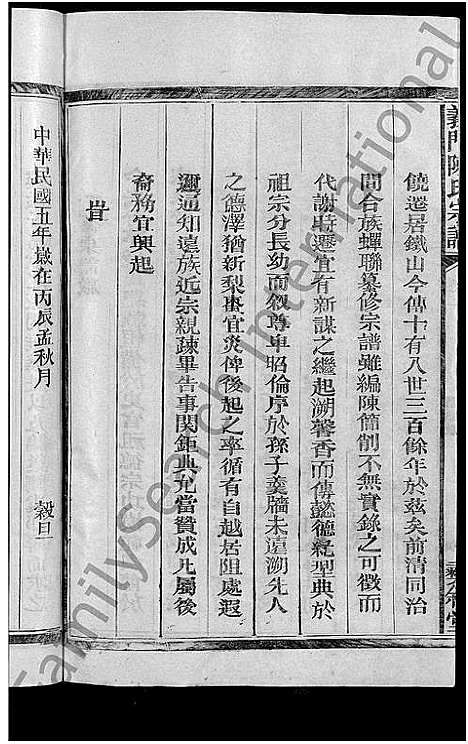 義門陳氏宗譜
饒遷居鐵山今傳十有八世三百餘年於茲矣前清同治
間合族蟬聯纂修宗譜雖編陳簡削不無實錄之可徵而
代謝時遷宜有新謀之繼起溯馨香而傳懿德紀型典於
祖宗分長幼而敘尊卑昭倫序於孫子羹牆未遠溯先人
之德澤猶新梨棗宜災俾後起之率循有自越居阻處遐
邇通知遠族近宗親疎畢告事関鉅典允當贊成凡屬後
裔務宜興起
旹
中華民國五年嵗在丙辰孟秋月 穀旦
FamilySearch International